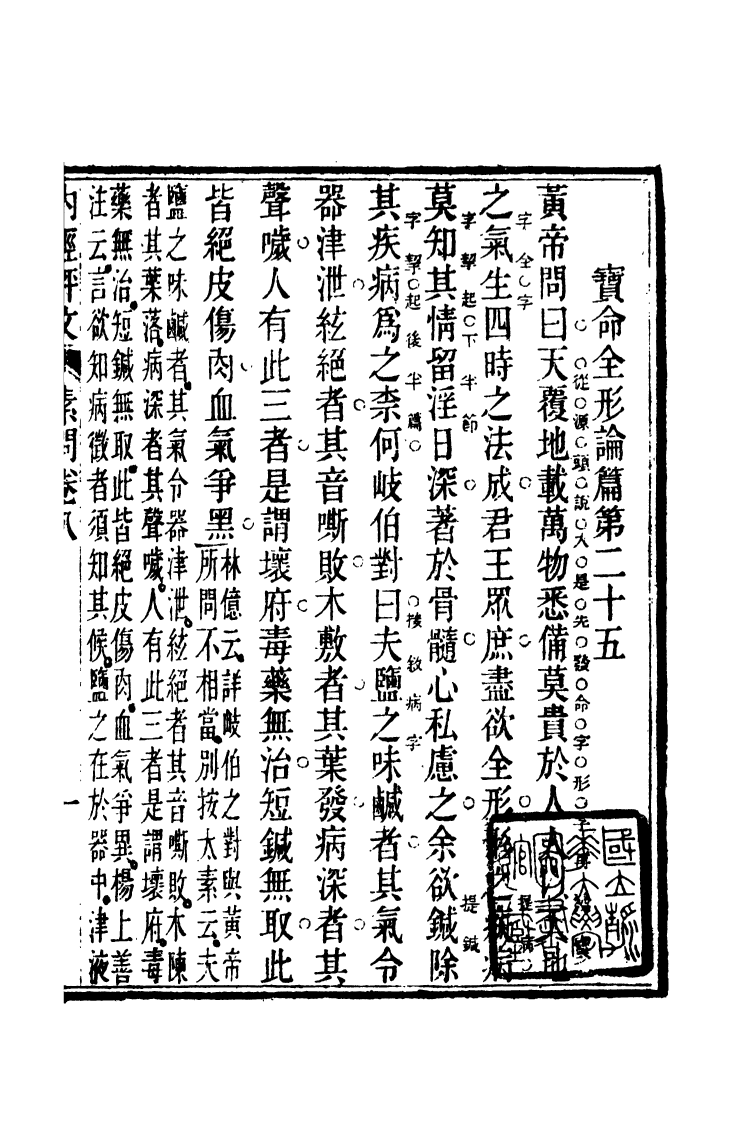 寶命全形論篇第二十五
從源頭說人是先發命字形
黃帝問曰天覆地載萬物悉備莫貴於人
字 全字
之氣生四時之法成君王眾庶盡欲全形
字挈起下半節 提鍼
莫知其情留淫日深著於骨髓心私慮之余欲鍼除
字挈起後半篇 接敘病字
其疾病為之柰何岐伯對曰夫鹽之味鹹者其氣令
器津泄絃絕者其音嘶敗木敷者其葉發病深者其
聲噦人有此三者是謂壞府毒藥無治短鍼無取此
皆絕皮傷肉血氣爭黑
林億云詳岐伯之對與黃帝
所問不相當別按太素云夫
鹽之味鹹者其氣令器津泄絃絕者其音嘶敗木陳
者其葉落病深者其聲噦人有此三者是謂壞府毒
藥無治短鍼無取此皆絕皮傷肉血氣爭異楊上善
注云言欲知病徵者須知其候鹽之在於器中津液
內經評文 素問卷八 一